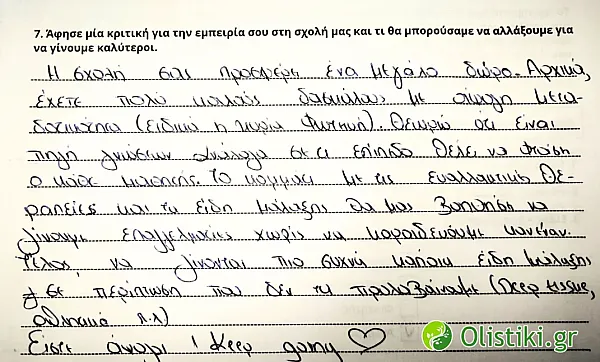 7. Άφησε μία κριτική για την εμπειρία σου στη σχολή μας και τι θα μπορούσαμε να αλλάξουμε για
να γίνουμε καλύτεροι.
Η σχολή σας προσφέρει ένα μεγάλο δώρο. Αρχικά,
έχετε πολύ καλούς δασκάλους με άψογη μετα-
δοτικότητα (ειδικά η κυρία Φωτεινή). Θεωρώ ότι είναι
πηγή γνώσεων ανάλογα σε τι επίπεδο θέλει να φτάσει
ο κάθε μαθητής. Το κομμάτι με τις εναλλακτικές θε-
ραπείες και τα είδη μάλαξης θα μας βοηθήσει να
γίνουμε επαγγελματίες χωρίς να κοροϊδεύουμε κανέναν.
Τέλος, να γίνονται πιο συχνά κάποια είδη μάλαξης
σε περίπτωση που δεν τα προλαβαίναμε (Deep tissue,
αθλητικό κ.λ)
Είστε άψογοι! Keep going ♡
Olistiki.gr